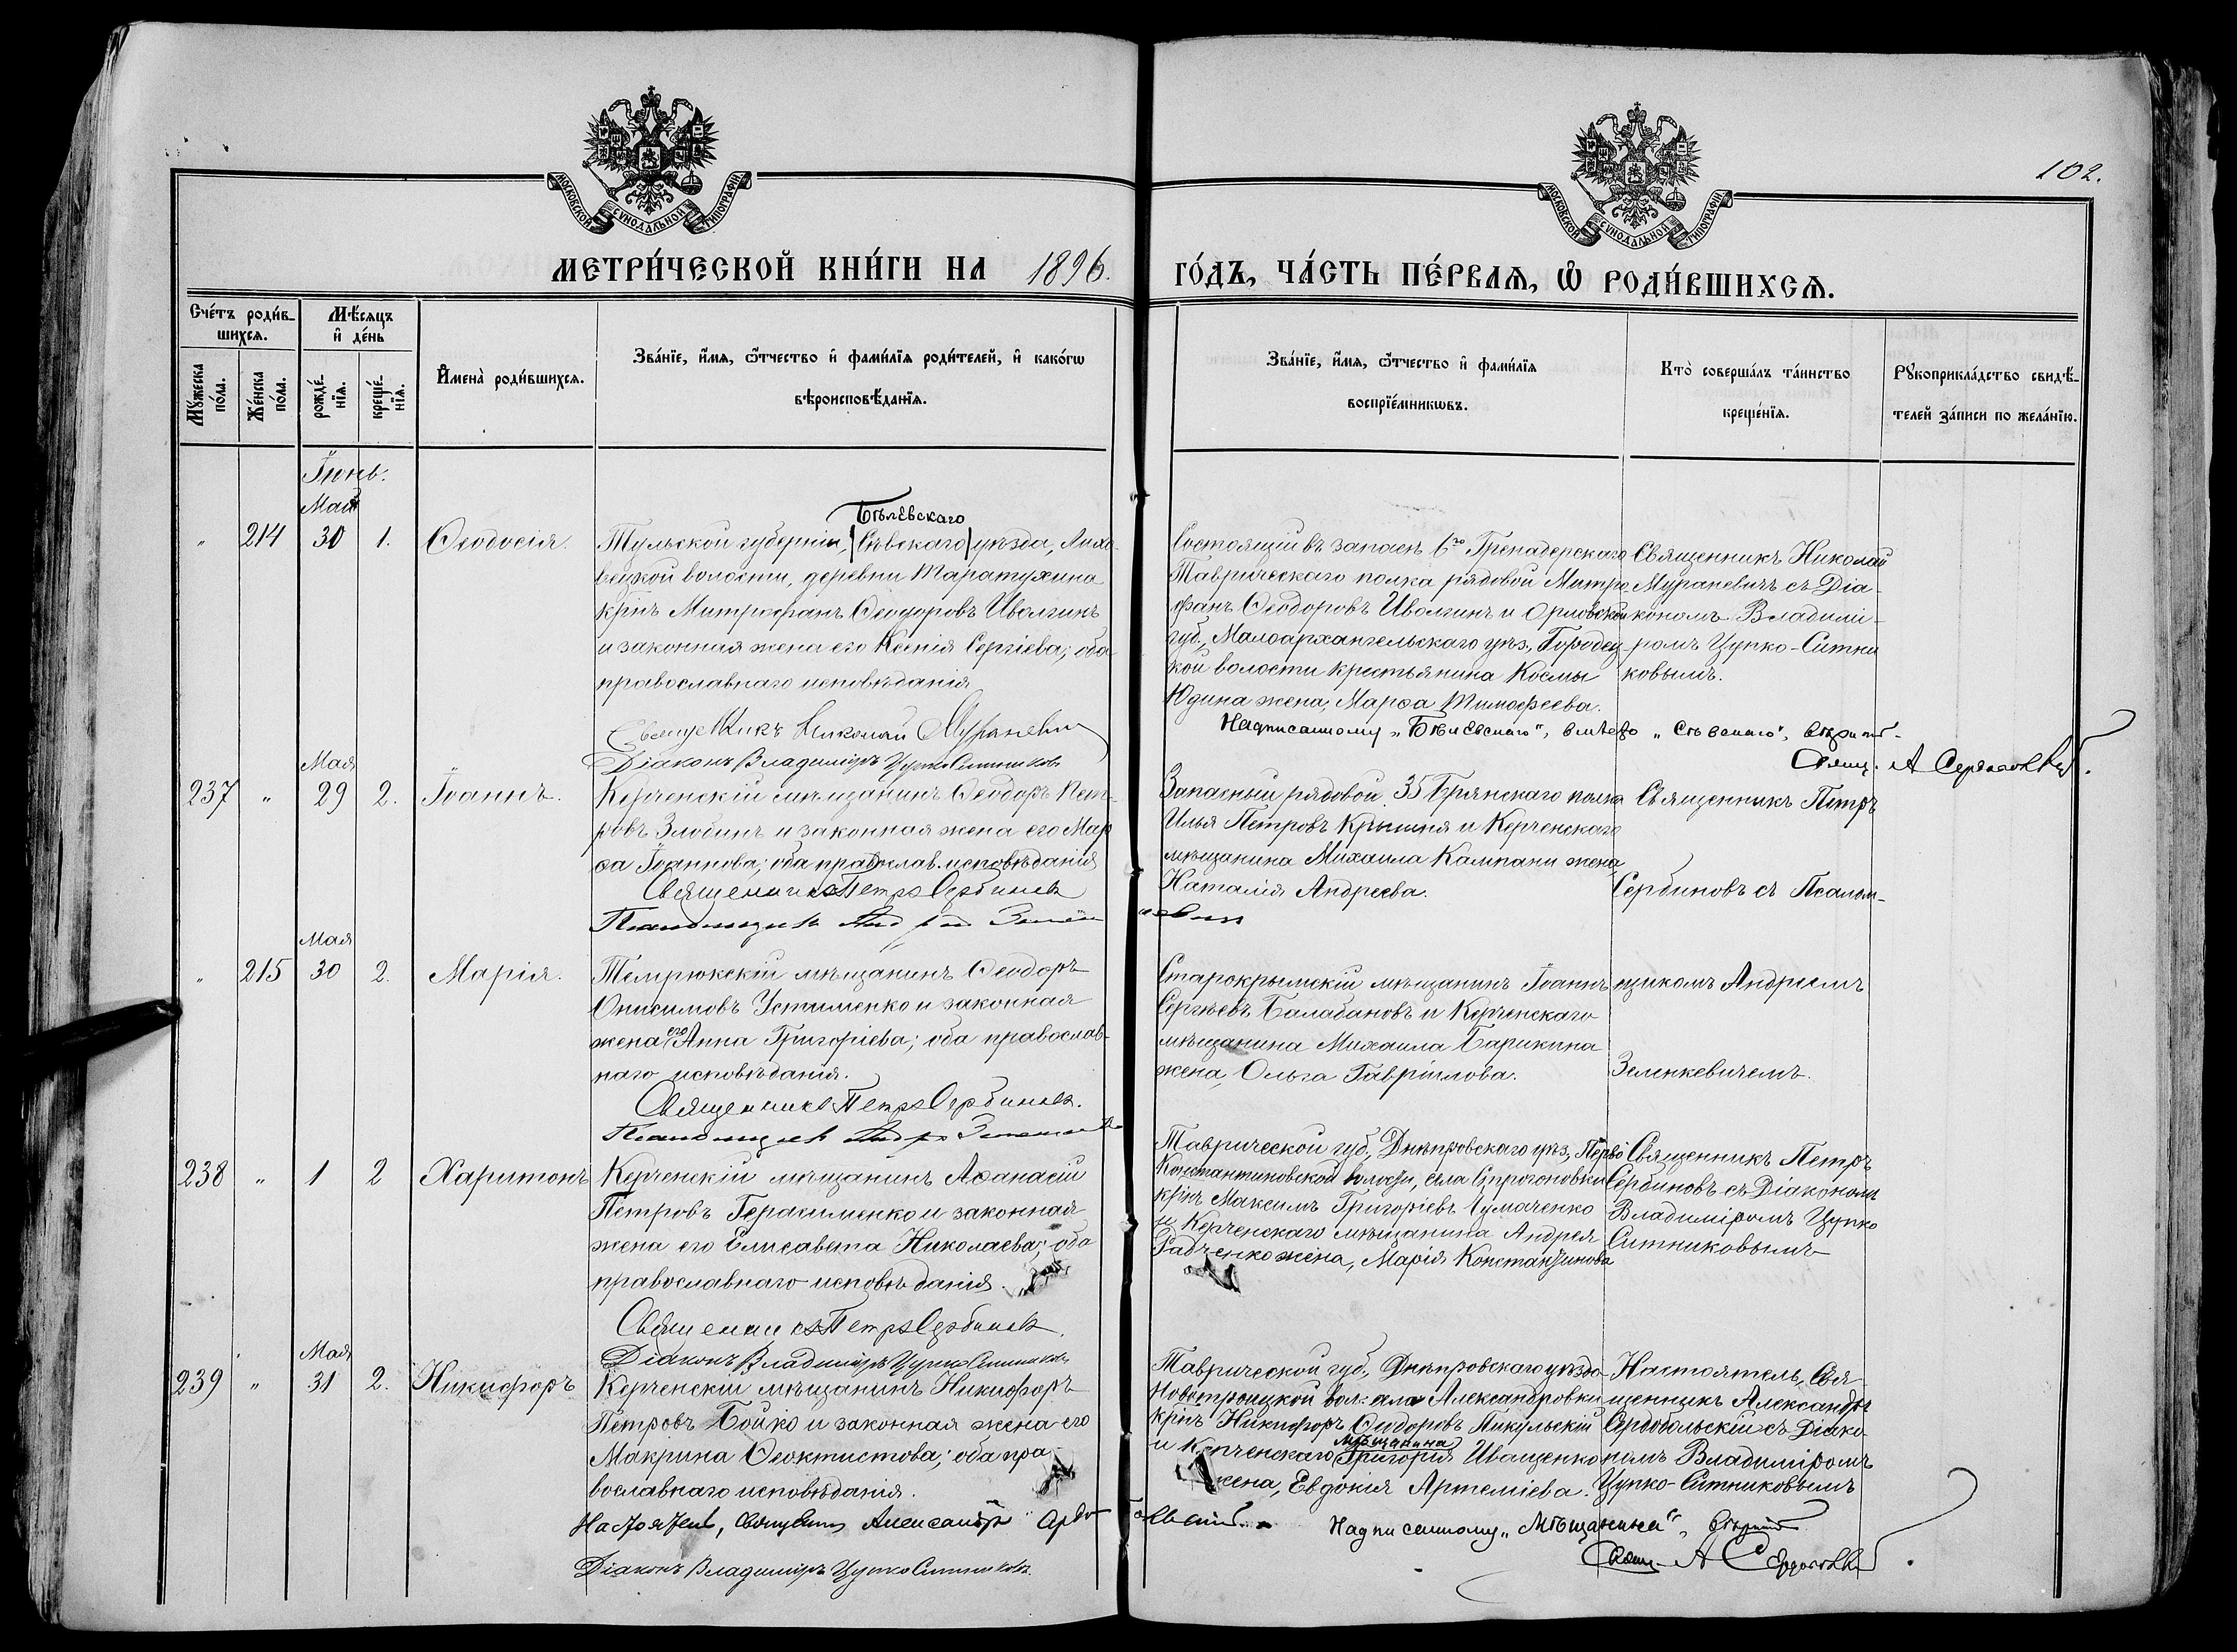 102.
МОСКОВСКОЙ СѴНОДАЛЬНОЙ ТИПОГРАФІИ
МОСКОВСКОЙ СѴНОДАЛЬНОЙ ТИПОГРАФІИ
МЕТРИ́ЧЕСКОЙ КНИ́ГИ НА 1896. ГО́ДЪ, ЧА́СТЬ ПЕ́РВАѦ, Ѽ РОДИ́ВШИХСѦ.
Сче́тъ роди́в-
шихсѧ.
Мꙋжеска по́ла.
Же́нска по́ла.
Мѣ́сѧцъ
и҆ де́нь
рожде́-
нїѧ.
креще́-
нїѧ.
И҆мена̀ роди́вшихсѧ.
Зва́нїе, и҆́мѧ, ѻ҆́тчество и҆ фами́лїѧ роди́телей, и҆ како́гѡ
вѣроисповѣ́данїѧ.
Зва́нїе, и҆́мѧ, ѻ҆́тчество и҆ фами́лїѧ
воспрїе́мникѡвъ.
Кто̀ соверша́лъ та́инство
креще́нїѧ.
Рꙋкоприкла́дство свидѣ́-
телей за́писи по жела́нїю.
Іюнь.
Мая
" 214 30 1. Ѳеодосія.
Бѣлевскаго
Тульской губерніи, (Сѣвскаго) уѣзда, Лихо-
вецкой волости, деревни Таратухина
крнъ Митрофанъ Ѳеодоровъ Иволгинъ
и законная жена его Ксенія Сергіева; оба
православнаго исповѣданія
Священникъ Николай Мураневичъ
Діаконъ Владиміръ Цупко-Ситниковъ
Состоящій въ запасѣ 6го Гренадерскаго
Таврическаго полка рядовой Митро
фанъ Ѳеодоровъ Иволгинъ и Орловской
губ., Малоархангельскаго уѣз., Городец-
кой волости крестьянина Космы
Юдина жена, Марѳа Тимоѳеева.
Священникъ Николай
Мураневичъ съ Діа-
кономъ Владимі-
ромъ Цупко-Ситни
ковымъ.
Надписанному „Бѣлевскаго", вмѣсто „Сѣвскаго", вѣрить.
Свящ. А Сердобольскій.
Мая
237 " 29 2. Іоаннъ.
Керченскій мѣщанинъ Ѳеодоръ Пет-
ровъ Злобинъ и законная жена его Мар
ѳа Іоаннова; оба православ. исповѣданія
Священникъ Петръ Сербиновъ
Псаломщикъ Андрей Зеленкевичъ
Запасный рядовой 35 Брянскаго полка
Илья Петровъ и Керченскаго
мѣщанина Михаила Кампани жена,
Наталія Андреева.
Священникъ Петръ
Сербиновъ съ Псалом-
Мая
" 215 30 2. Марія.
Темрюкскій мѣщанинъ Ѳеодоръ
Онисимовъ Устименко и законная
жена его Анна Григоріева; оба православ-
наго исповѣданія.
Священникъ Петръ Сербиновъ.
Псаломщикъ Андрей Зеленкевичъ
Старокрымскій мѣщанинъ Іоаннъ
Сергѣевъ Балабановъ и Керченскаго
мѣщанина Михаила Барикина
жена, Ольга Гавріилова.
щикомъ Андреемъ
Зеленкевичемъ.
238 " 1 2 Харитонъ
Керченскій мѣщанинъ Аѳанасій
Петровъ Герасименко и законная
жена его Елисавета Николаева; оба
православнаго исповѣданія.
Священникъ Петръ Сербиновъ.
Діаконъ Владиміръ Цупко-Ситниковъ
Таврической губ., Днѣпровскаго уѣз., Перво
Константиновской волости, села
крнъ Максимъ Григоріевъ Чумаченко
и Керченскаго мѣщанина Андрея
Рабченко жена, Марія Константинова
Священникъ Петръ
Сербиновъ съ Діакономъ
Владиміромъ Цупко
Ситниковымъ
Мая
239 " 31 2. Никифоръ
Керченскій мѣщанинъ Никифоръ
Петровъ Бойко и законная жена его
Макрина Ѳеоктистова; оба пра-
вославнаго исповѣданія.
Настоятель, Священникъ Александръ Сердобольскій.
Діаконъ Владиміръ Цупко-Ситниковъ
Таврической губ., Днѣпровскаго уѣзда
Новотроицкой вол. села Александровки
крнъ Никифоръ Ѳеодоровъ Микульскій
мѣщанина
и Керченскаго Григорія Иващенко
жена, Евдокія Артеміева.
Настоятель, Свя-
щенникъ Александръ
Сердобольскій съ Діако-
номъ Владиміромъ
Цупко-Ситниковымъ
Надписанному „Мѣщанина", вѣрить
Свящ. А Сердобольскій.